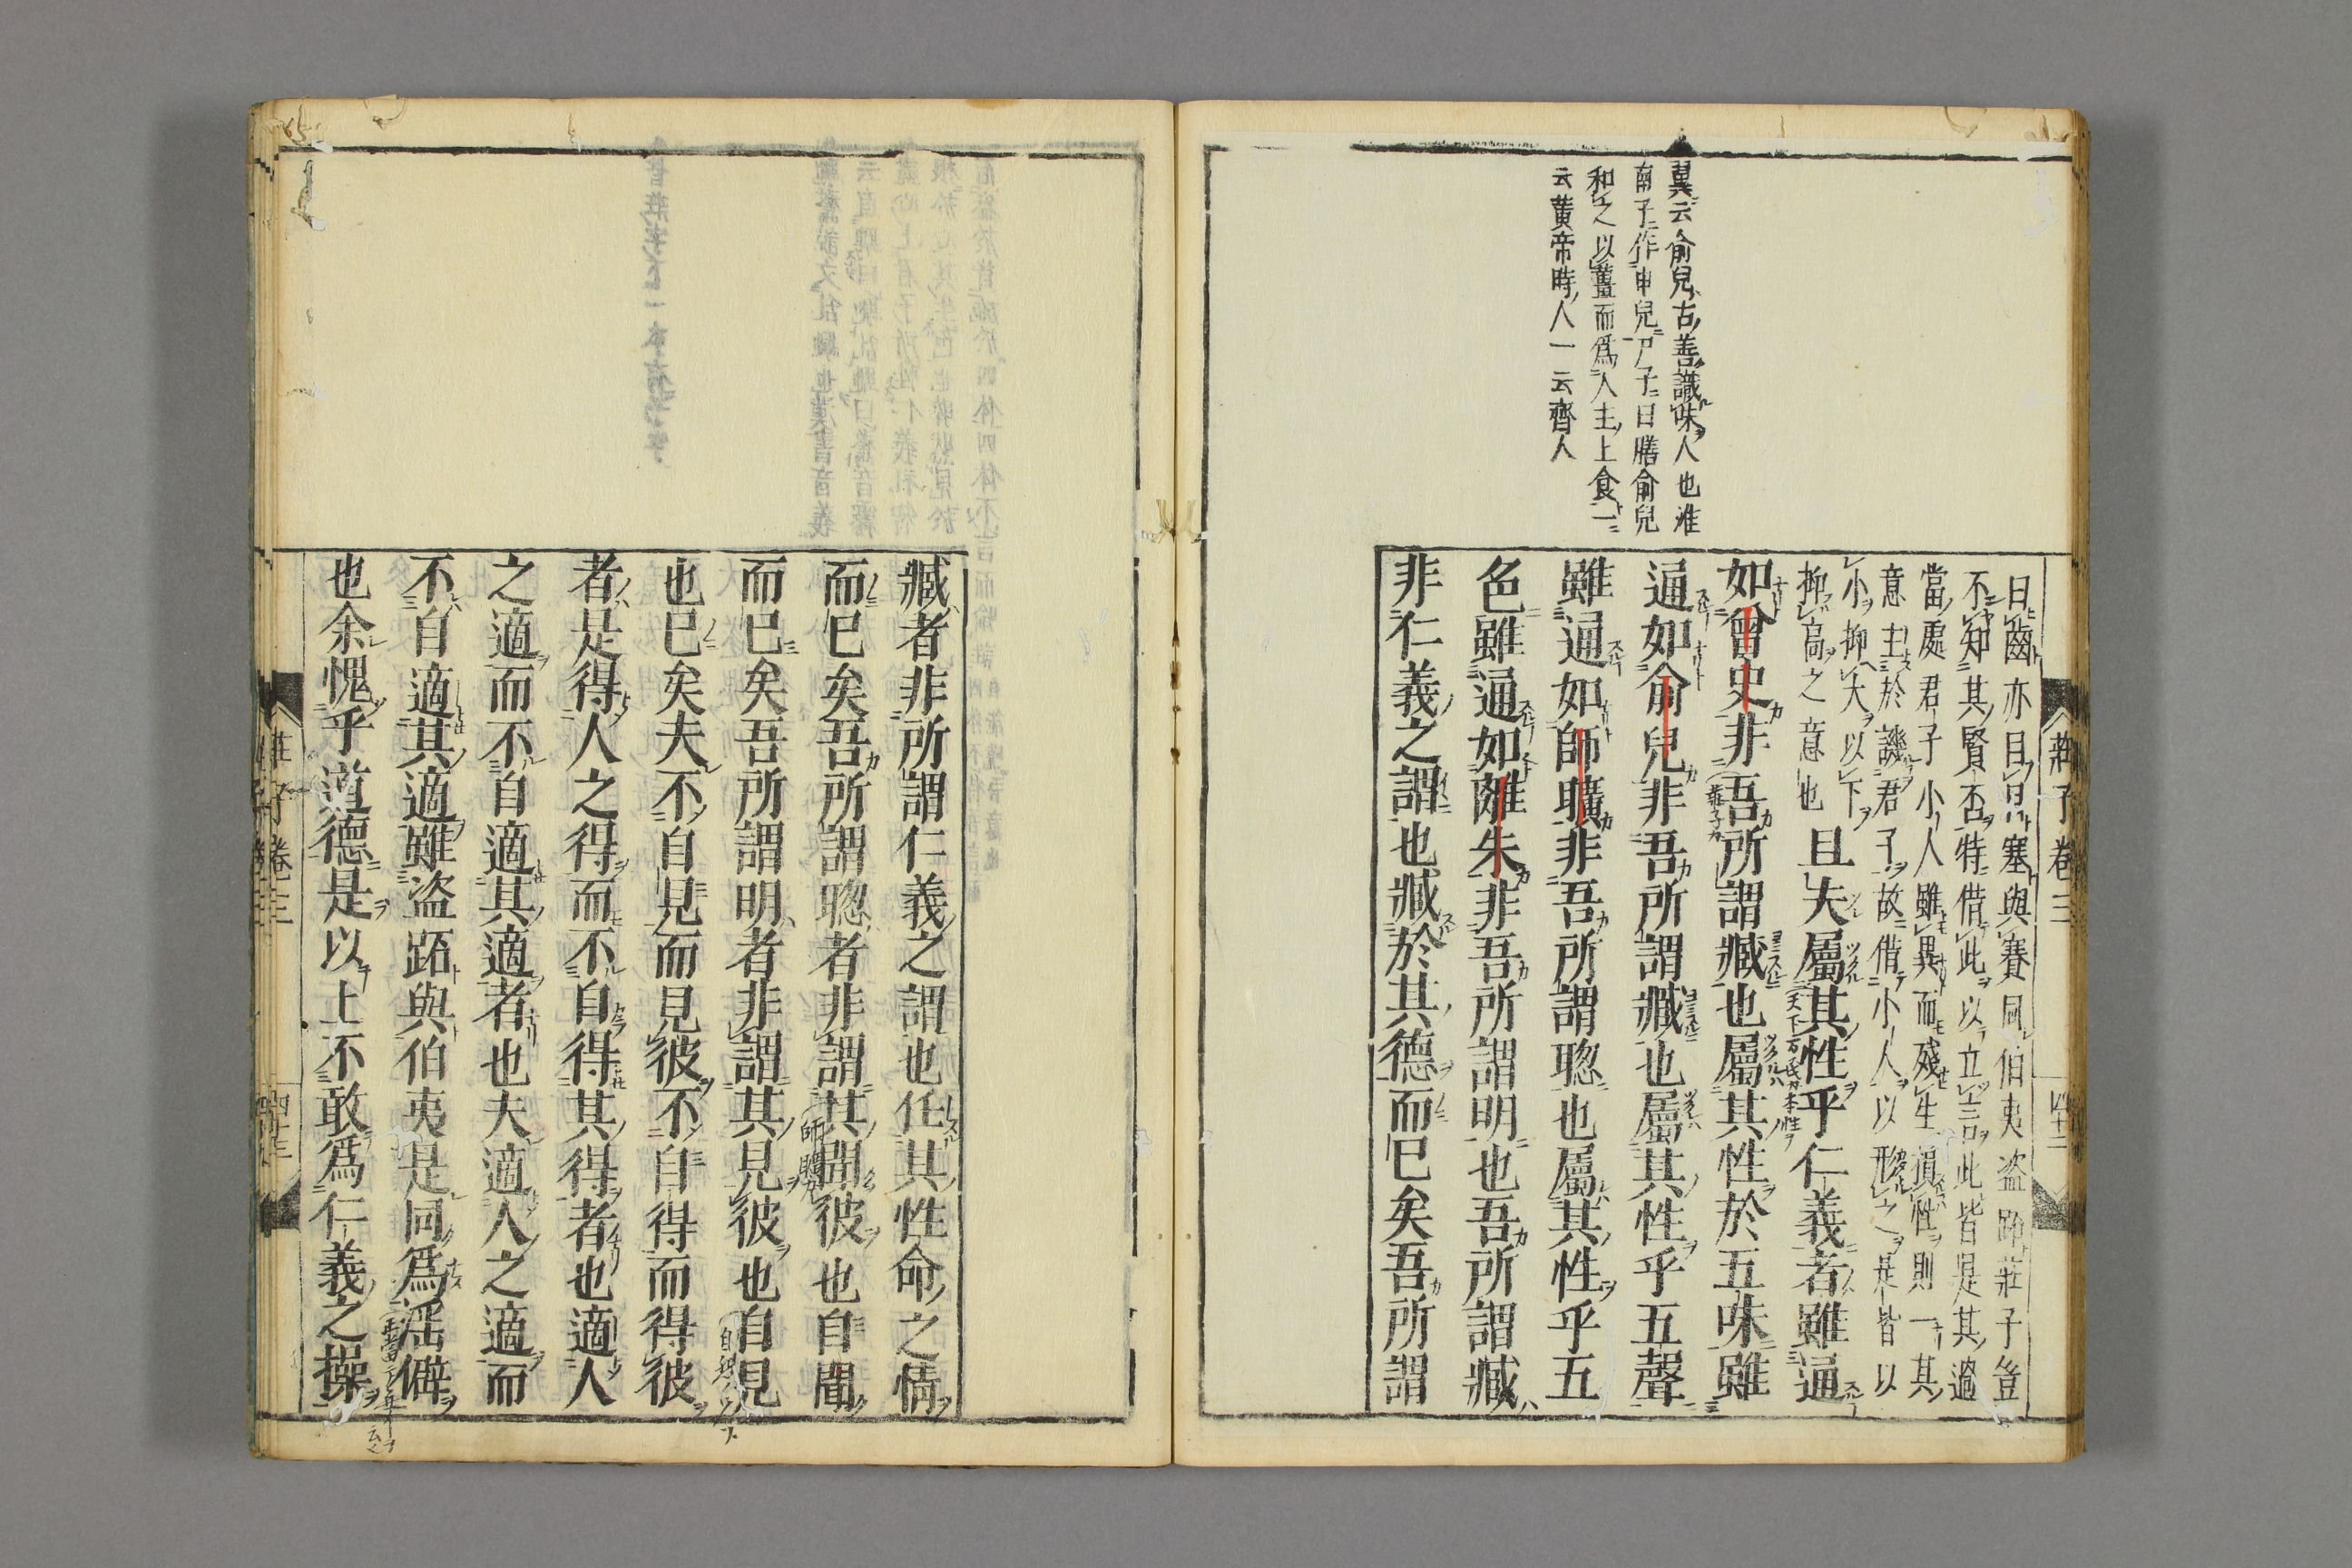 翼云俞兒古善識味人也淮
南子作申兒尸子曰膳俞兒
和之以薑而爲人主上食一
云黃帝時人一云齊人
莊子卷三
四十二
曰齒亦目曰塞與賽同伯夷盗跖莊子豈
不知其賢否特借此以立言此皆是其過
當處君子小人雖異而殘生損性則一其
意主於譏君子故借小人以形之是皆以
小抑大以下
抑高之意也 且夫屬其性乎仁義者雖通
如曾史非吾所謂臧也屬其性於五味雖
通如俞兒非吾所謂臧也屬其性乎五聲
雖通如師曠非吾所謂聦也屬其性乎五
色雖通如離朱非吾所謂明也吾所謂臧
非仁義之謂也臧於其德而已矣吾所謂
臧者非所謂仁義之謂也任其性命之情
而已矣吾所謂聦者非謂其聞彼也自聞
而已矣吾所謂明者非謂其見彼也自見
也已矣夫不自見而見彼不自得而得彼
者是得人之得而不自得其得者也適人
之適而不自適其適者也夫適人之適而
不自適其適雖盗跖與伯夷是同爲淫僻
也余愧乎道德是以上不敢爲仁義之操
莊子卷三
四十三